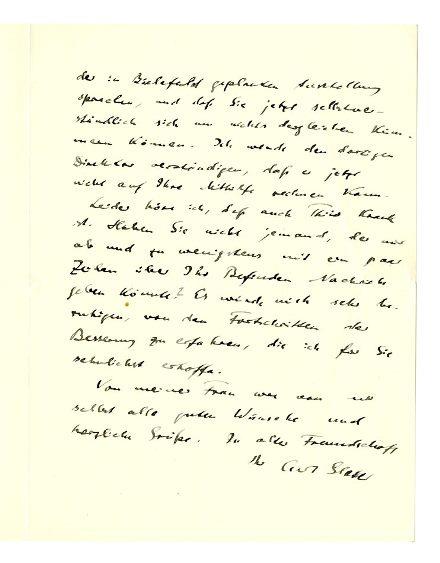 der in Bielefeld geplanten Ausstellung
sprachen, und daß Sie jetzt selbstver-
ständlich sich um nichts dergleichen küm-
mern können. Ich werde den dortigen
Direktor verständigen, daß er jetzt
nicht auf Ihre Mithilfe rechnen kann.
Leider höre ich, daß auch krank
ist. Haben Sie nicht jemand, der mir
ab und zu wenigstens mit ein paar
Zeilen über Ihr Befinden Nachricht
geben könnte? Es würde mich sehr be-
ruhigen, von den Fortschritten der
Besserung zu erfahren, die ich für Sie
sehnlichst erhoffe.
Von meiner Frau wie von mir
selbst alle guten Wünsche und
herzliche Grüße. In alter Freundschaft
Ihr Curt Glaser